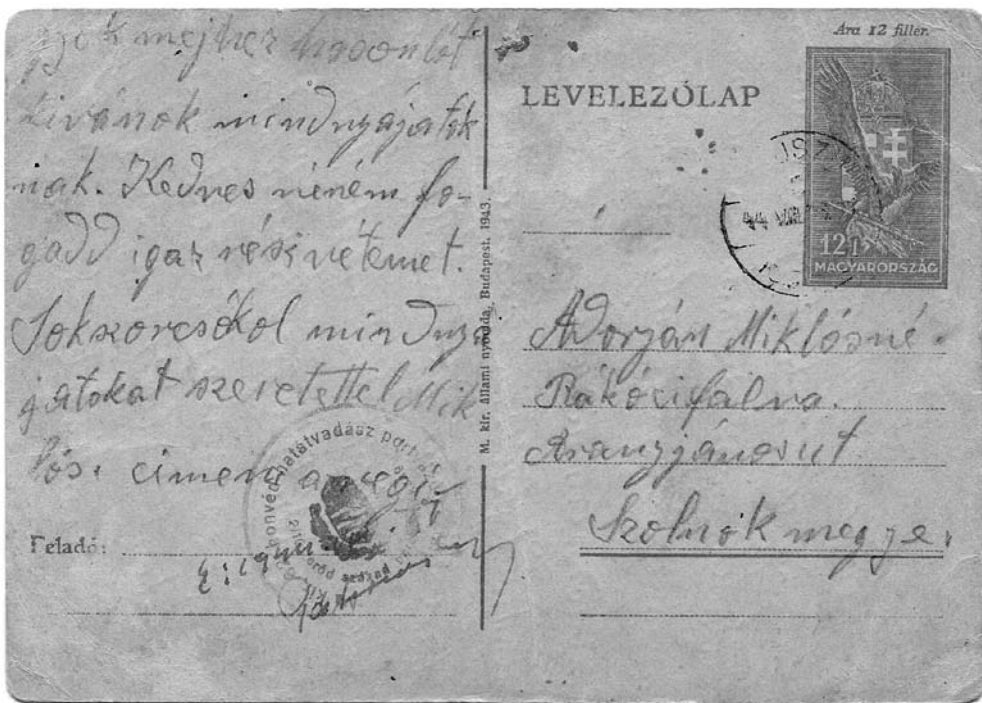 mejhez hasonlót
kivánok mindnyájatok
nak. Kedves néném fo-
gadd igaz részvétemet.
Sokszorcsókol mindnyá
jatokat szeretettel Mik
lós. cimem a régi
Feladó:
M. kir. állami nyomda, Budapest. 1943.
Ára 12 fillér.
LEVELEZŐLAP
44 VIII
12 f
MAGYARORSZÁG
Adorján Miklósné.
Rákócifalva.
Aranyjánosut
Szolnok megye.
honvéd határvadász
század